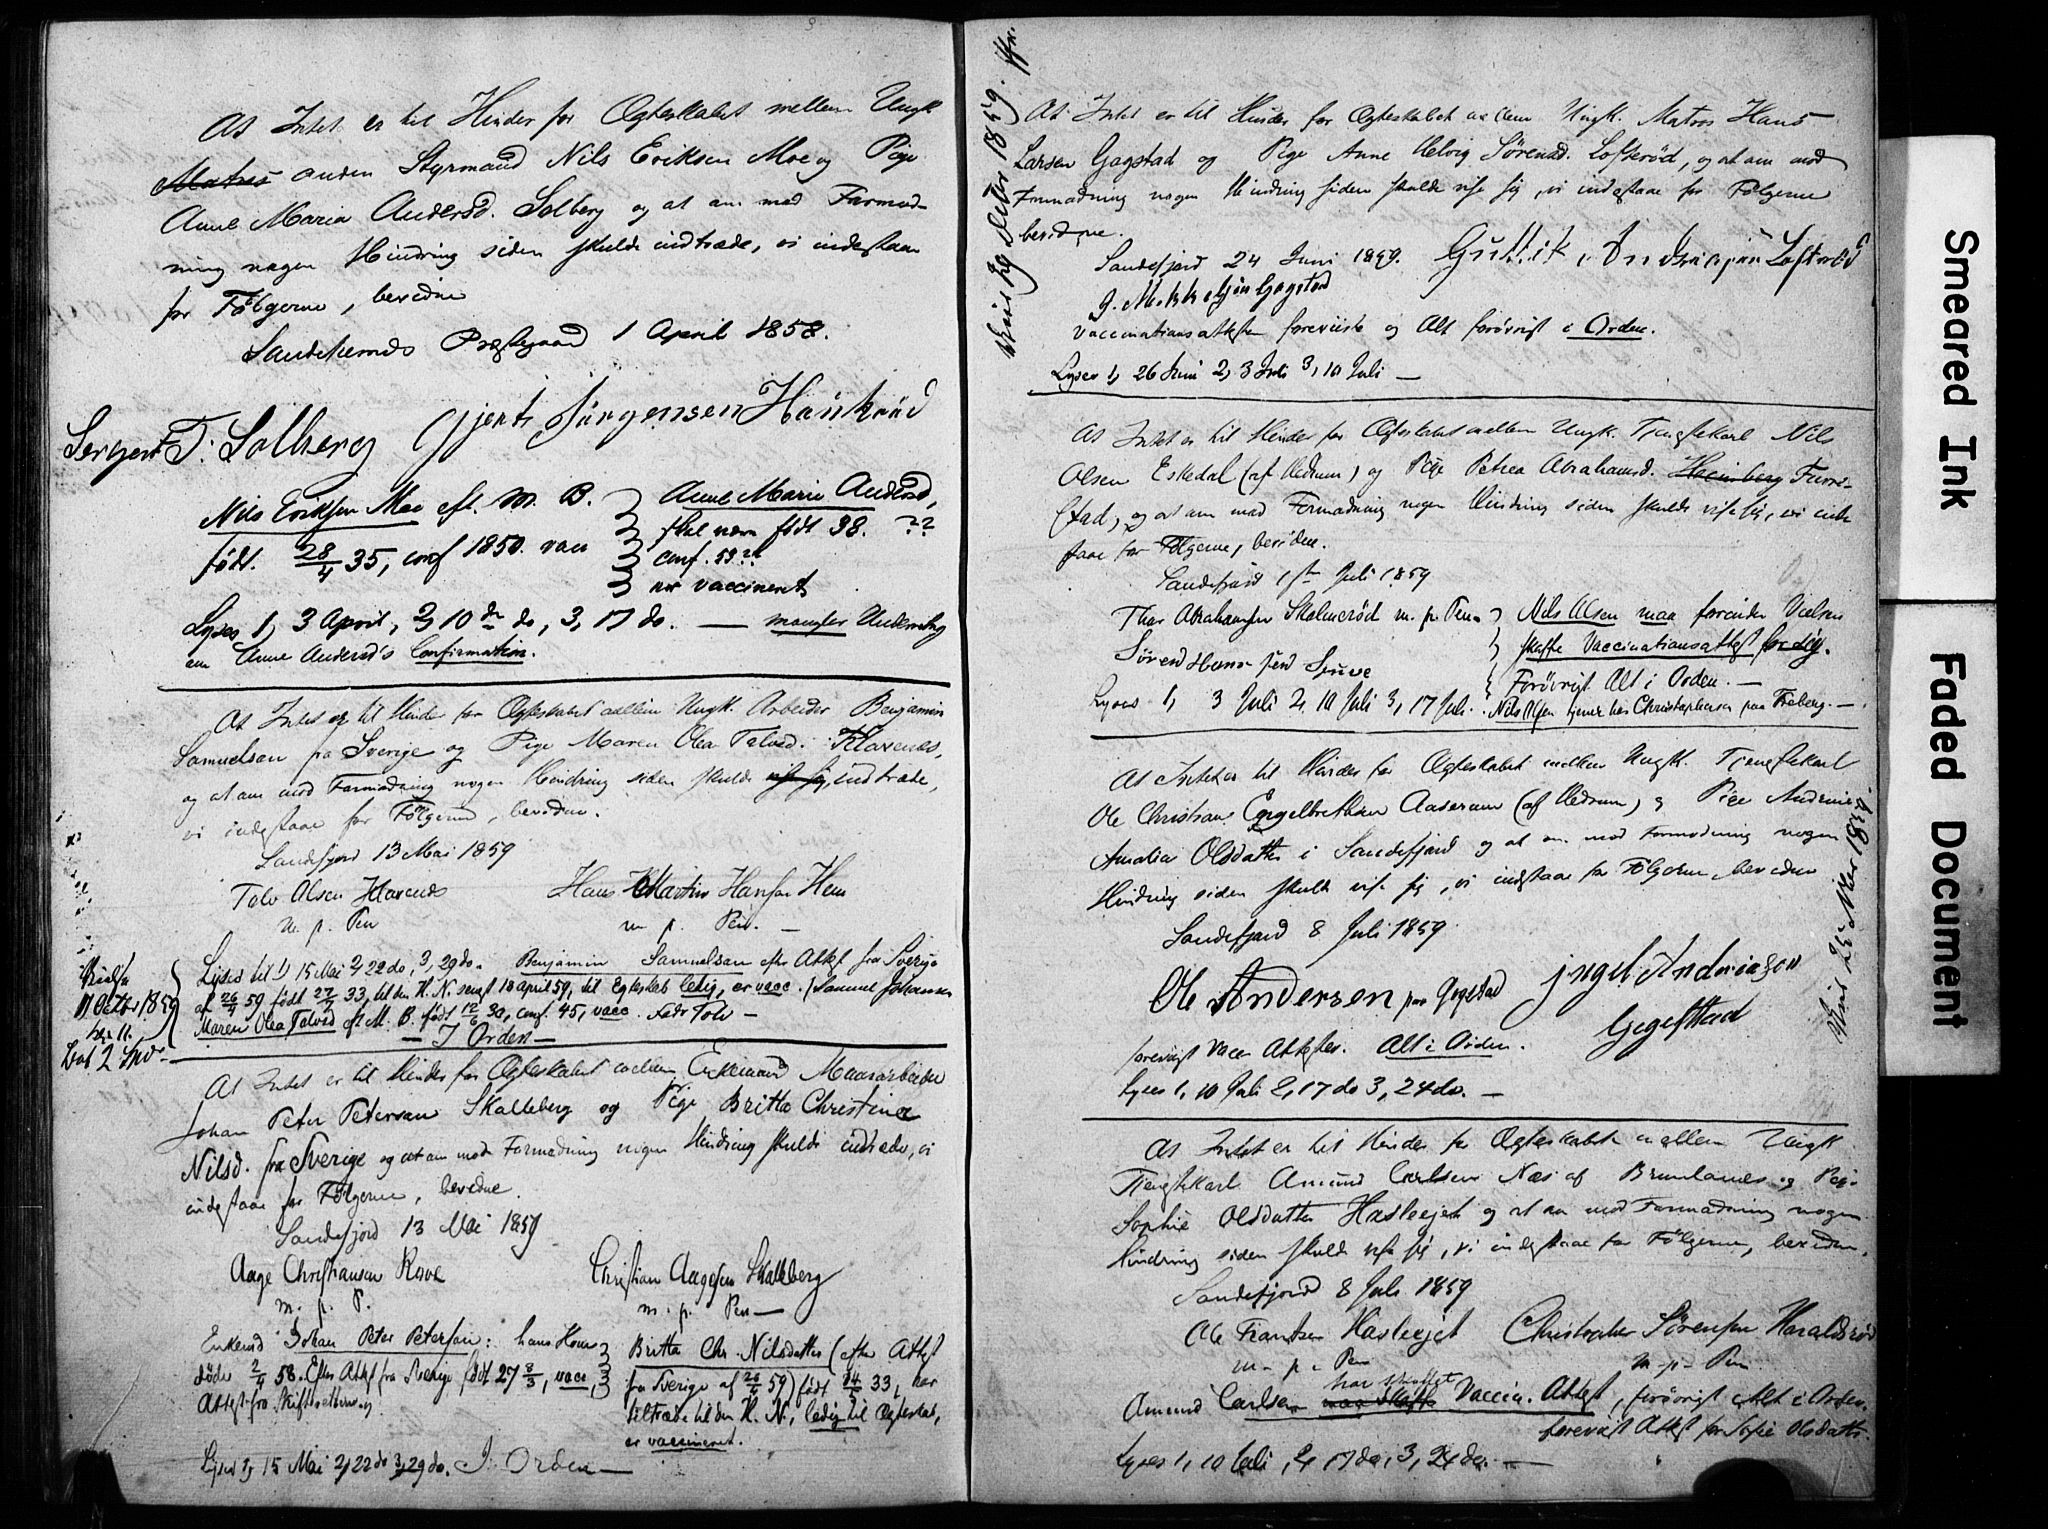 At Intet er til Hinder for Ægteskabet mellem Ungk.
Matros anden Styrmand Nils Eriksen Moe og Pige
Anne Maria Andersd. Solberg og at om mod Formod-
ning nogen Hindring siden skulde indtræde, vi indestaae
for Følgerne, bevidne
Sandeherreds Præstegaard 1 April 1858.
Sergent T. Solberg Gjert Jörgensen Haukröd
Nils Eriksen Moe eft. M. B.
født 28/4 35, conf 1850. vacc
Anne Marie Andersd,
skal være født 38. ??
conf. 53 ??
er vaccineret
Lyses 1, 3 April, 2, 10de do, 3, 17 do. — mangler Underretng
om Anne Andersd's Confirmation.
At Intet er til Hinder for Ægteskabet mellem Ungk. Arbeider Benjamin
Samuelsan fra Sverige og Pige Maren Olea Talvsd. Klavenes,
og at om mod Formodning nogen Hindring siden skulde vise sig, indtræde,
vi indestaae for Følgerne, bevidne.
Sandefjord 13 Mai 1859
Talv Olsen Klavenes Hans Martin Hansen Hem
m. p. Pen m. p. Pen. —
Lyses til 1) 15 Mai 2, 22 do, 3, 29 do. Benjamin Samuelsan efter Attest fra Sverige
af 26/4 59 født 27/7 33, til den H. N. sengst 18 april 59, til Egteskab ledig, er vacc. (Samuel Johansen
Maren Olea Talvsd eft M. B. født 12/6 30, conf. 45, vacc. Fadr Talv —
— I Orden —
Viede
11 Octbr 1859
Bet 2 Spd
At Intet er til Hinder for Ægteskabet mellem Enkemand Murarbeider
Johan Peter Petersan Skalleberg og Pige Britta Christina
Nilsd. fra Sverige og at om mod Formodning nogen Hindring skulde indtræde, vi
indestaae for Følgerne, bevidne.
Sandefjord 13 Mai 1859
Aage Christiansen Rove Christian Aagesen Skalleberg
m. p. P. m. p. Pen —
Enkemd Johan Peter Petersan: hans Hone
døde 2/4 58. Efter Attest fra Sverige født 27 8/3, vacc,
Attest fra Skifteretten
Britta Chr. Nilsdatter (efter Attest
fra Sverige af 20/4 59) født 24/5 33, har
tiltræde til den H. N., ledig til Ægteskab,
er vaccineret.
Lyses 1, 15 Mai 2, 22 do 3, 29 do. I Orden —
Viet 29 Octbr 1859.
At Intet er til Hinder for Ægteskabet mellem Ungk. Matros Hans
Larsen Gogstad og Pige Anne Helvig Sørensd. Lofterød, og at om mod
Formodning nogen Hindring siden skulde vise sig, vi indestaae for Følgerne
bevidne.
Sandefjord 24 Juni 1859. Gullik Andreasen Lofterød
G. Mathisen Gogstad
Vaccinationsattester foreviiste og Alt forøvrigt i Orden.
Lyses 1, 26 Juni 2, 3 Juli 3, 10 Juli —
At Intet er til Hinder for Ægteskabet mellem Ungk. Tjenestekarl Nils
Olsen Eskedal (af Hedrum) og Pige Petrea Abrahamsd. Heimberg Furu-
stad, og at om mod Formodning nogen Hindring siden skulde vise sig, vi inde
staae for Følgerne, bevidne.
Sandefjord 1ste Juli 1859
Thor Abrahamsen Skolmerød m. p. Pen
Sörend Hans send Sjuve
Nils Olsen maa forinden Vielsen
skaffe Vaccinationsattest for sig.
Forøvrigt Alt i Orden. —
Nils Olsen tjener hos Christophersen paa Freberg. —
Lyses 1, 3 Juli 2, 10 Juli 3, 17 Juli.
At Intet er til Hinder for Ægteskabet mellem Ungk. Tjenestekarl
Ole Christians Engelbrethsen Aaserum (af Hedrum) og Pige Andrine
Amalia Olsdatter i Sandefjord og at om mod Formodning nogen
Hindring siden skulde vise sig, vi indestaae for Følgerne, bevidne
Sandefjord 8 Juli 1859
Ole Andersen paa Gogstad Ingel Andreasson
Gogstad
forevist Vacc Attester. Alt i Orden.
Lyses 1, 10 Juli 2, 17 do 3, 24 do. —
At Intet er til Hinder for Ægteskabet mellem Ungk
Tjenestekarl Amund Carlsen Næs af Brunlanes og Pige
Sophie Olsdatter Hasleejet og at om mod Formodning nogen
Hindring siden skulde vise sig, vi indestaae for Følgerne, bevidne.
Sandefjord 8 Juli 1859
Ole Frantzen Hasleejet Christopher Sørensen Haraldsrød
m. p. Pen m. p. Pen
har skaffet
Amund Carlsen maa skaffe Vaccin. Attest, forøvrigt Alt i Orden.
forevist Attest for Sofie Olsdatt.
Lyses 1, 10 Juli, 2, 17 do, 3, 24 do. —
Smeared Ink
Faded Document